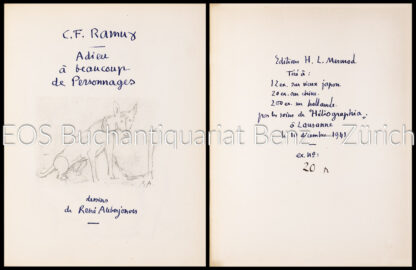 C. F. Ramuz
Adieu
à beaucoup
de Personnages
dessins
de René Auberjonois
Editions H. L. Mermod
Tiré à :
12 ex. sur vieux japon
20 ex. sur chine
200 ex. sur hollande
par les soins de "Héliographia"
à Lausanne
le 1er décembre 1941
ex. No:
20
EOS Buchantiquariat Benz - Zürich